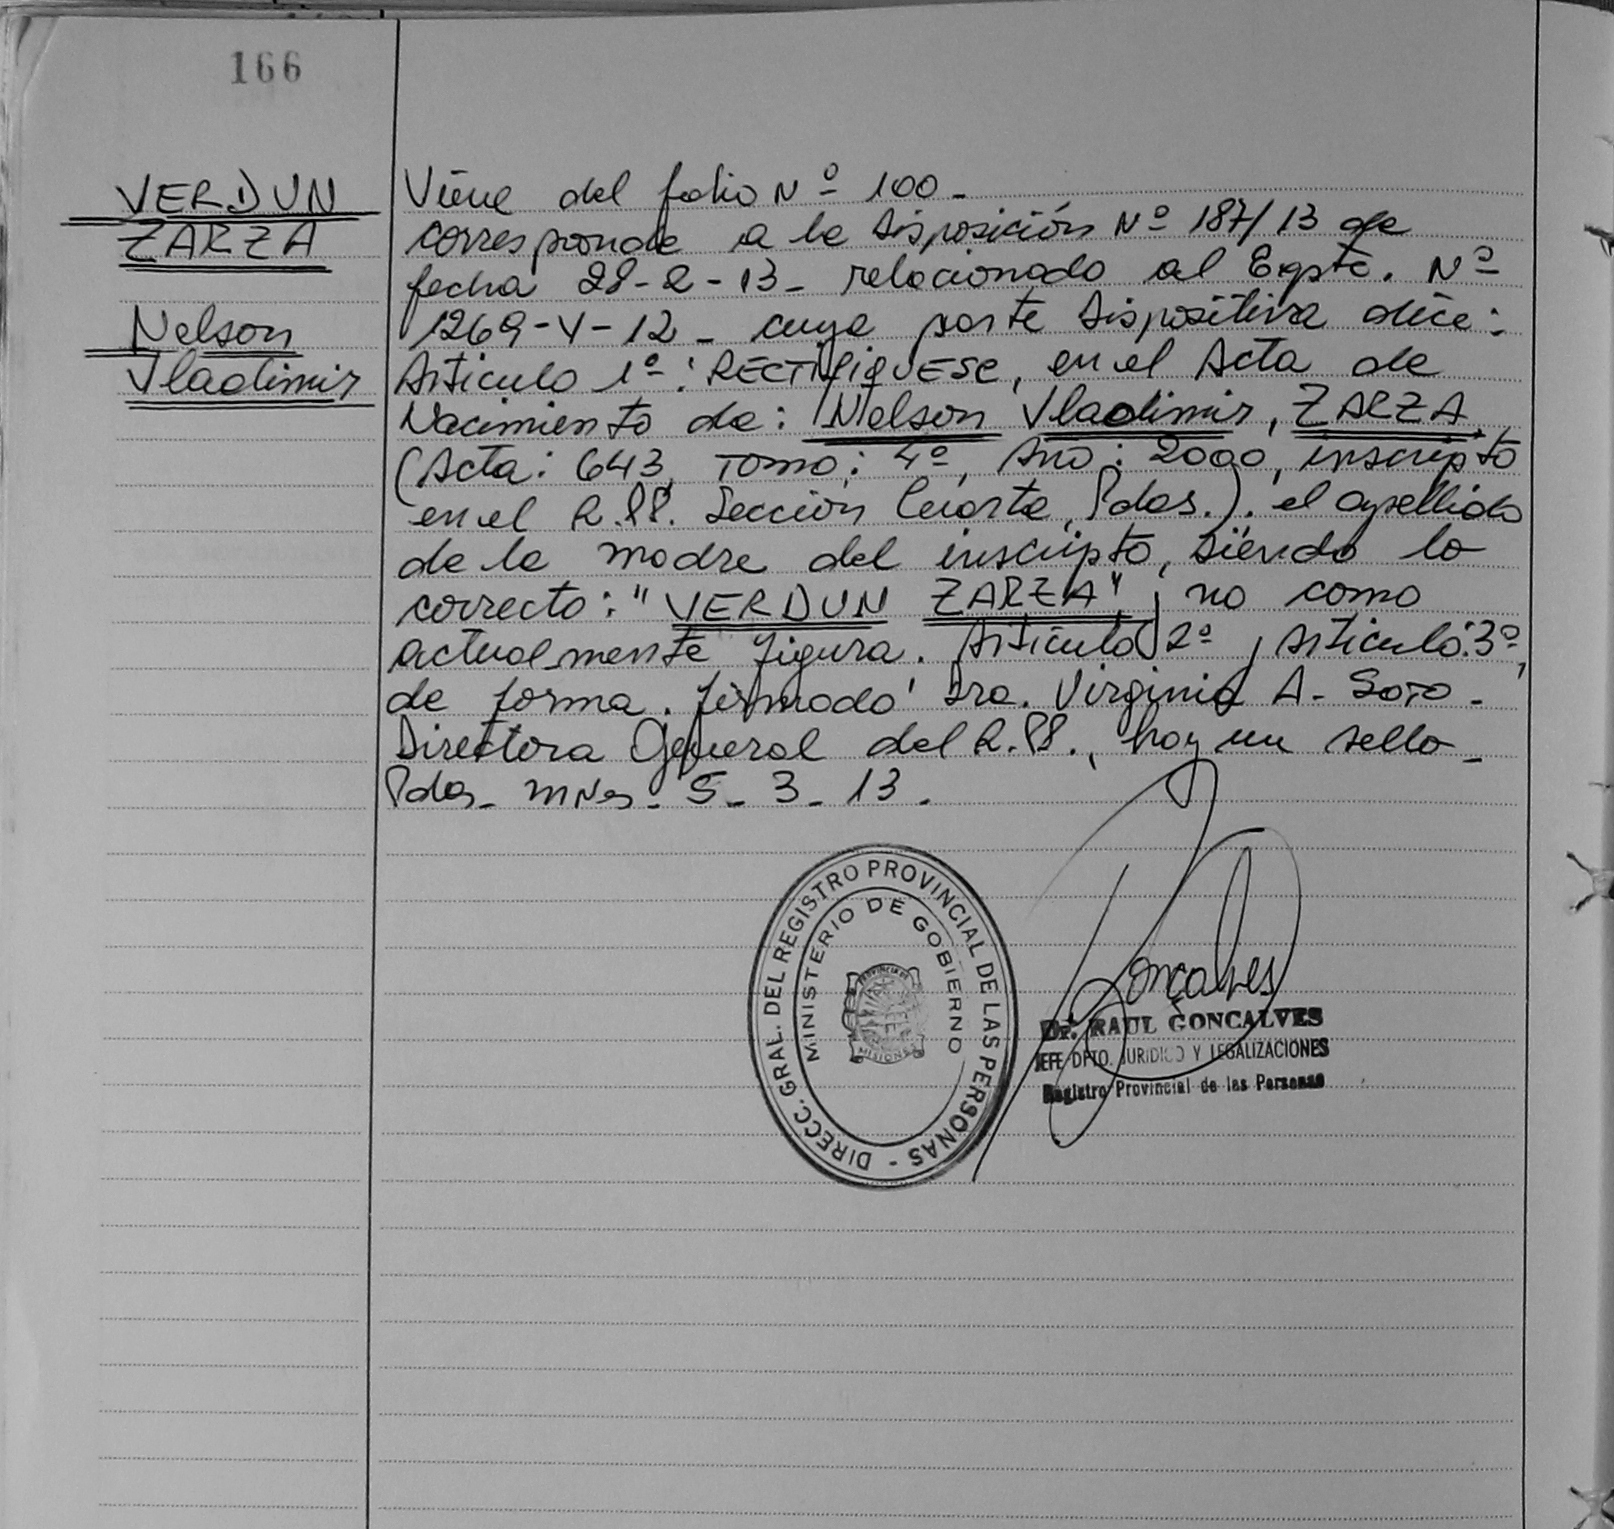 166
VERDUN
ZARZA
Nelson
Vladimir
Viene del folio Nº 100-
corresponde a la Disposición Nº 187/13 de
fecha 28-2-13- relacionado al Expte. Nº
1269-V-12- cuya parte Dispositiva dice:
Articulo 1º: RECTIFIQUESE, en el Acta de
Nacimiento de: Nelson Vladimir, ZARZA,
(Acta: 643, Tomo: 4º, Año: 2000, inscripto
en el R.PP. Sección Cuarta, Pdas.). el apellido
de la madre del inscripto, siendo lo
correcto: "VERDUN ZARZA" y no como
actualmente figura. Artículo 2º y Artículo: 3º,
de forma. firmado: Dra. Virginia A. Soto-
Directora General del R.PP., hay un sello-
Pdas- Mnes- 5-3-13.
DIRECC. GRAL. DEL REGISTRO PROVINCIAL DE LAS PERSONAS -
MINISTERIO DE GOBIERNO
PROVINCIA DE
MISIONES
Goncalves
Dr. RAUL GONCALVES
JEFE DPTO. JURIDICO Y LEGALIZACIONES
Registro Provincial de las Personas